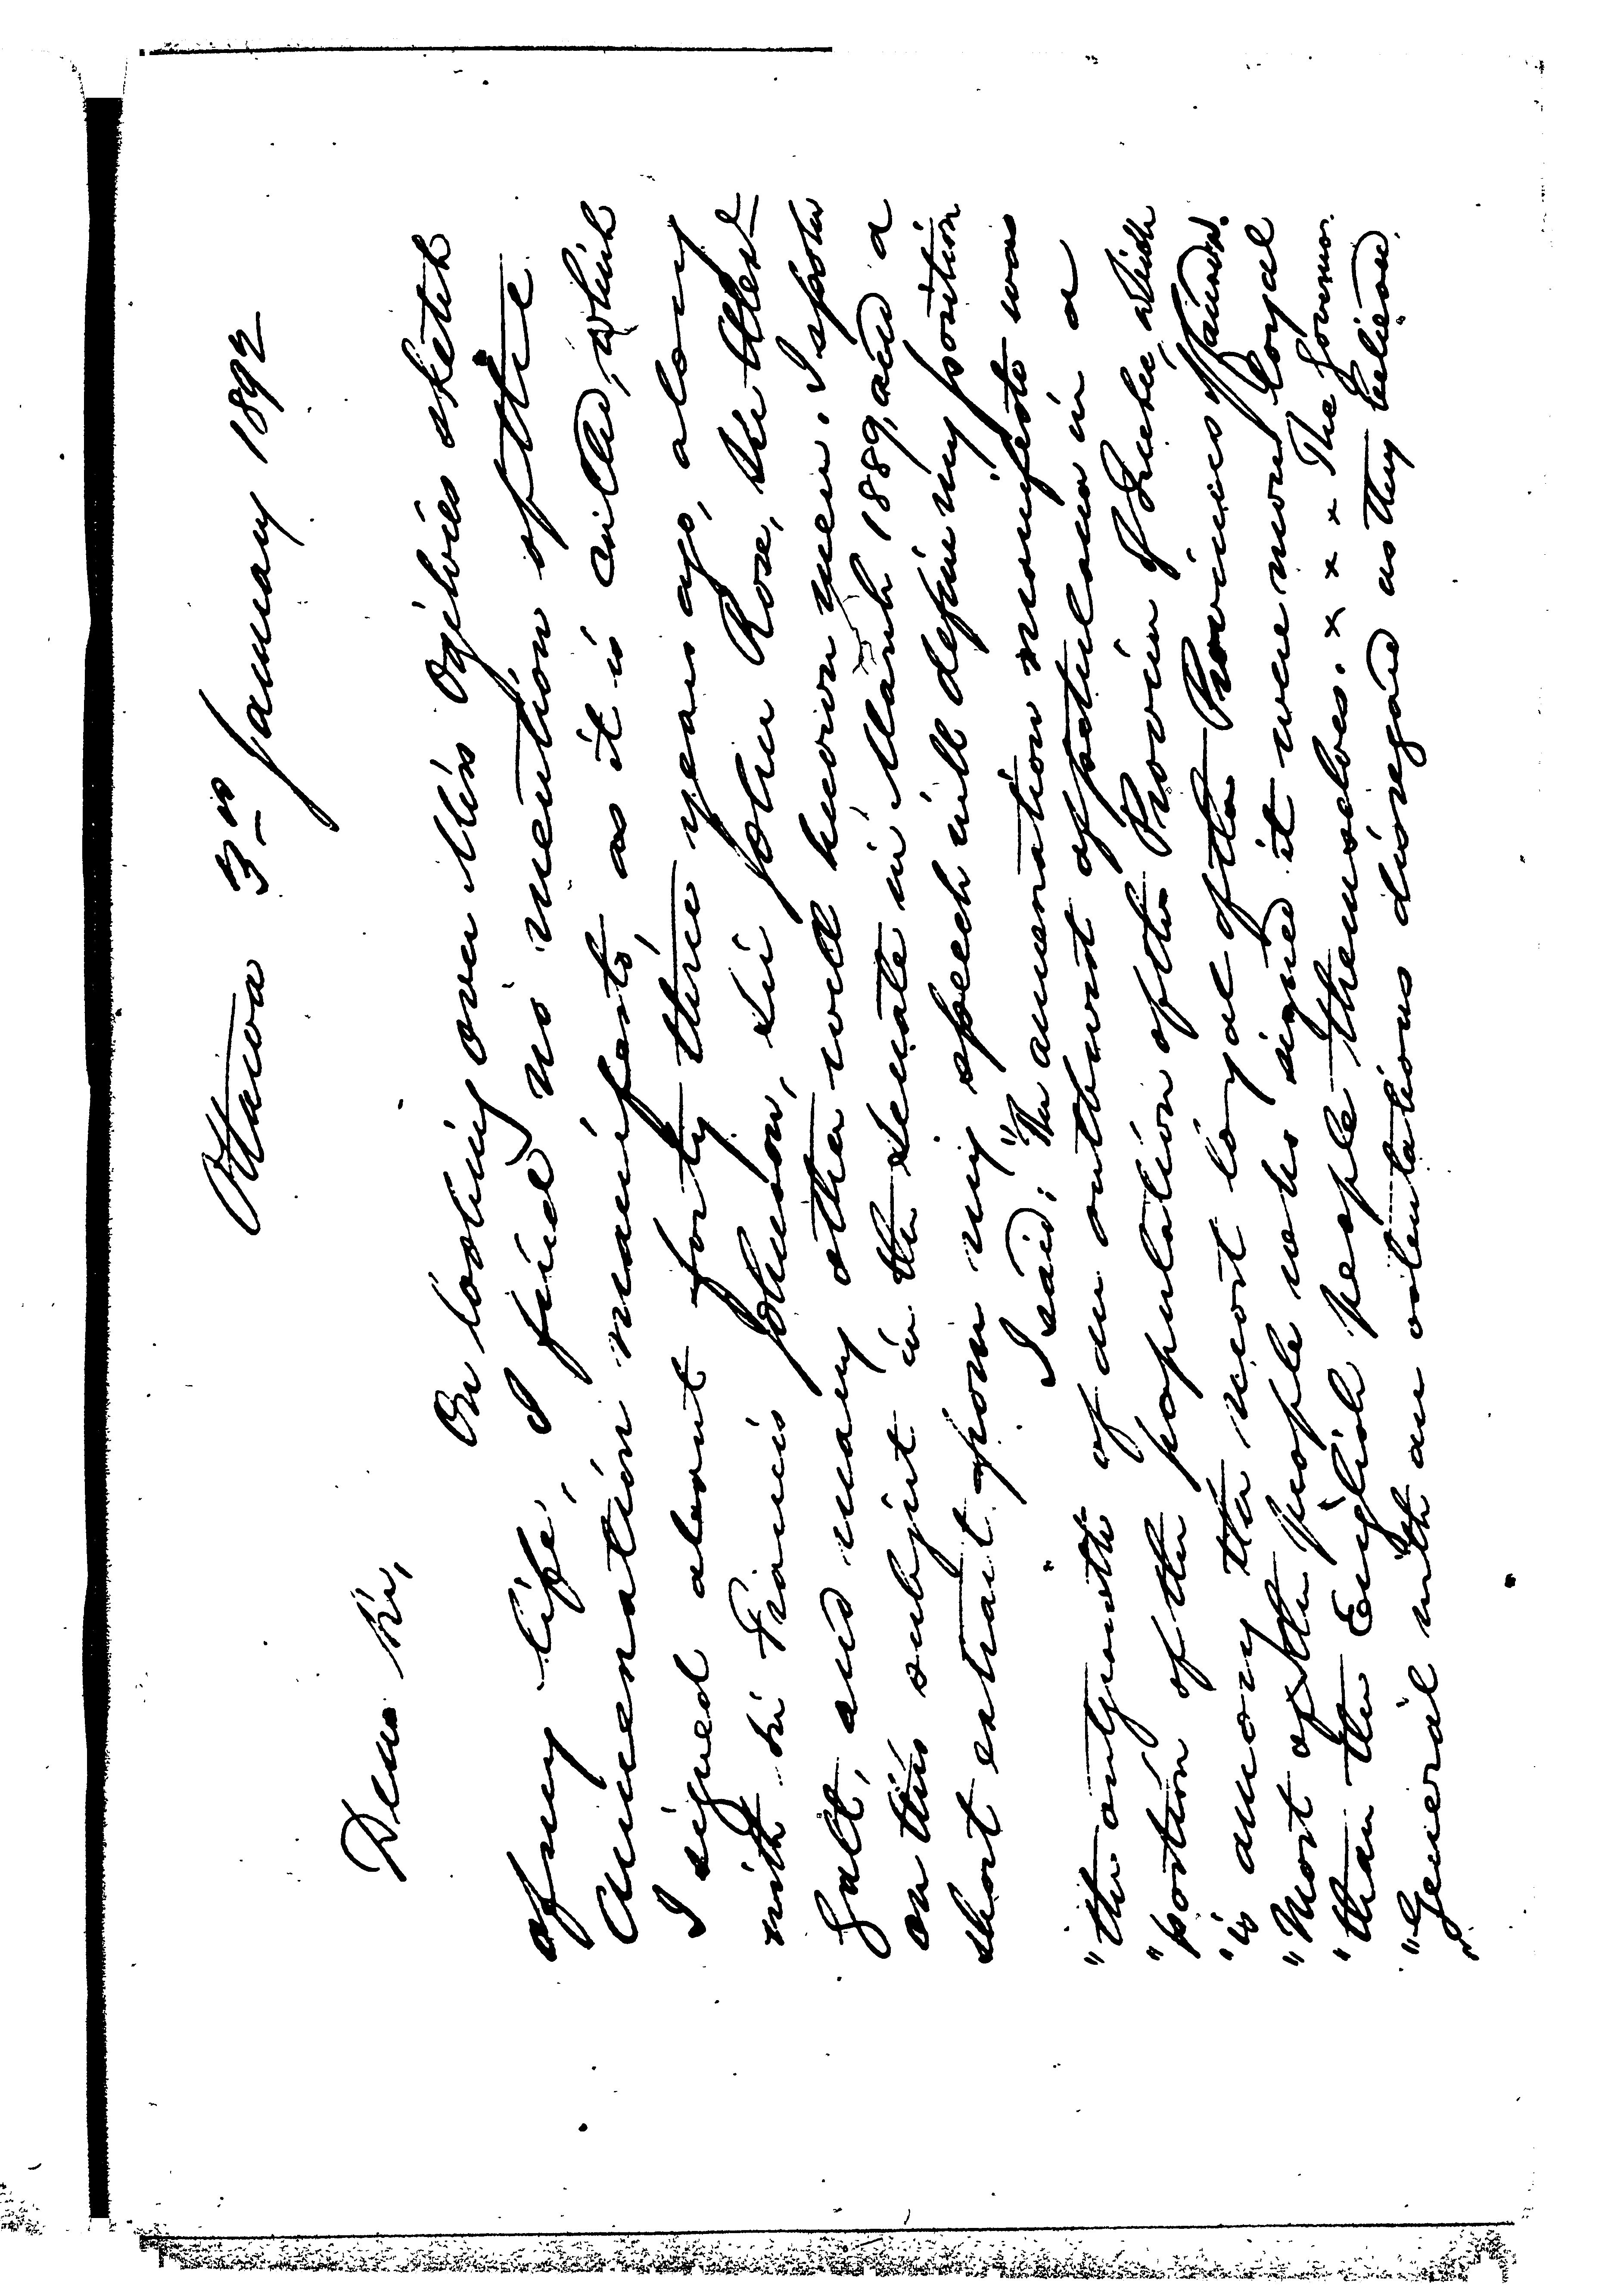 Ottawa 3rd January 1892
Dear Sir,
On looking over Miss Ogilvies sketch
of my life, I find no mention of the
Annexation manifesto, as it is called, which
I signed about forty three years ago, along
with Sir Francis Johnson, Sir John Rose, Sir Alexr
Galt, and many other well known men. I spoke
on this subject in the Senate in March 1889, and a
short extract from my speech will define my position
I said: "The annexation manifesto was
"the outgrowth of an outburst of petulance in a
"portion of the population of the Province of Quebec, which
"is among the most loyal of the Provinces of Canada.
"Most of the people who signed it were more loyal
"than the English people themselves. x x x x The Governor
"General with an ostentatious disregard as they believed,
"